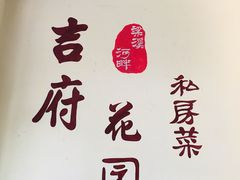 吉府
花园
梁溪
河畔
私房菜